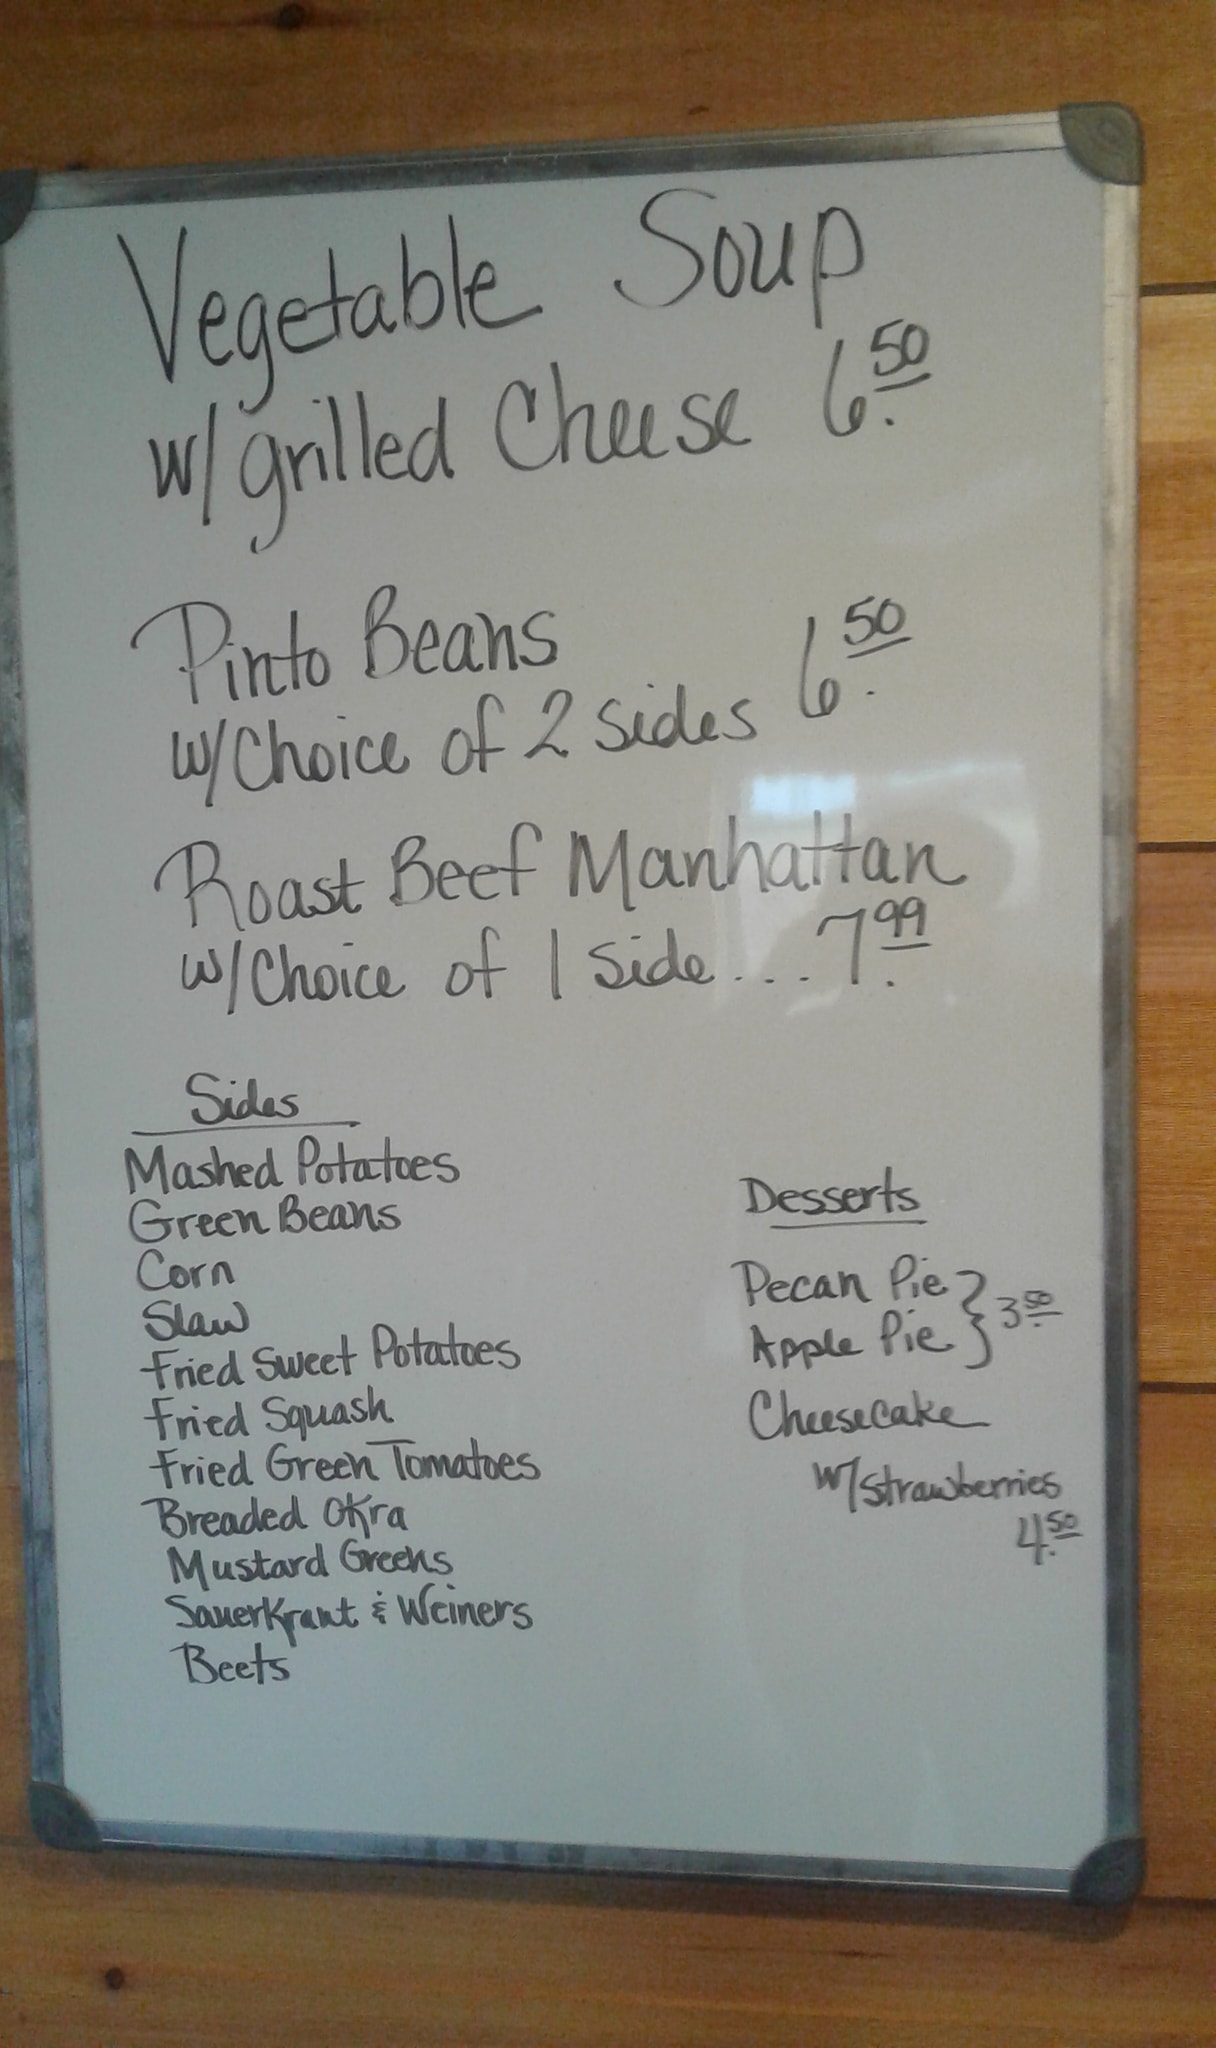 Vegetable Soup
w/grilled Cheese 6.50
Pinto Beans
w/Choice of 2 Sides 6.50
Roast Beef Manhattan
w/Choice of 1 Side... 7.99
Sides
Mashed Potatoes
Green Beans
Corn
Slaw
Fried Sweet Potatoes
Fried Squash
Fried Green Tomatoes
Breaded Okra
Mustard Greens
Sauerkraut & Weiners
Beets
Desserts
Pecan Pie
Apple Pie } 3.50
Cheesecake
w/strawberries
4.50